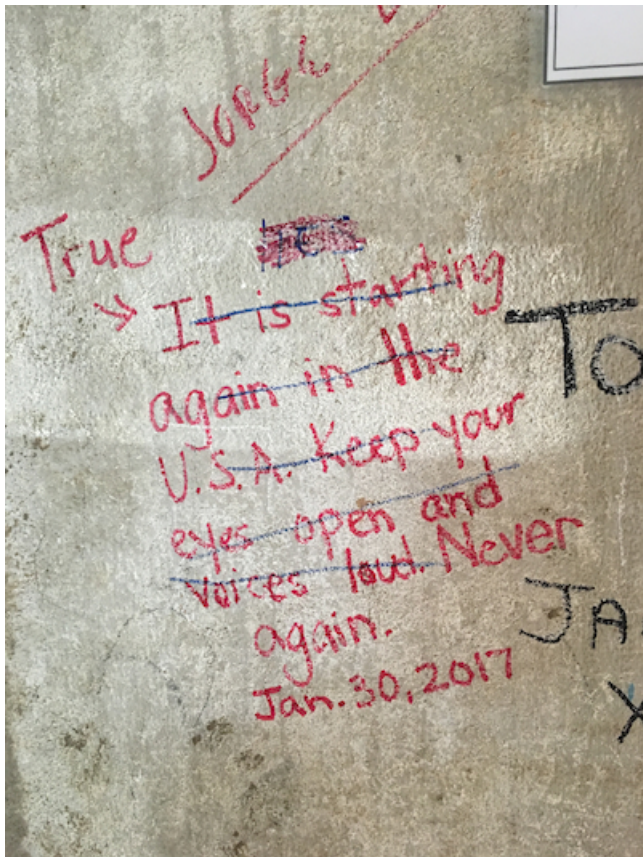 JORGE
True
It is starting
again in the
U.S.A. Keep your
eyes open and
voices loud. Never
again.
Jan. 30, 2017
TO
JA
X